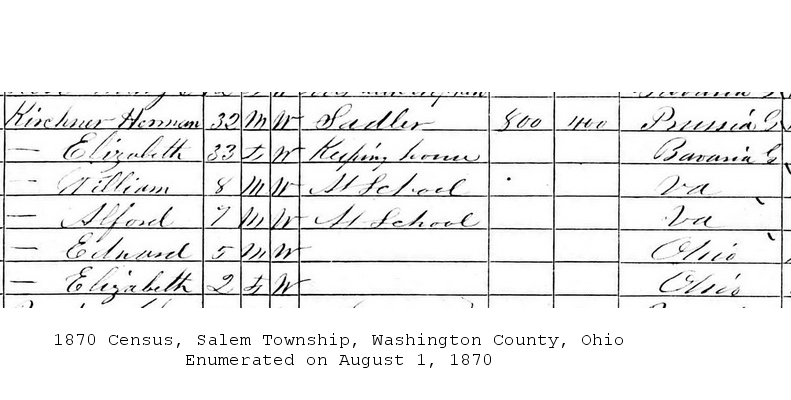 Kirchner Herman 32 M W Sadler 800 400 Prussia G
— Elizabeth 33 F W Keeping house Bavaria G
— William 8 M W At School Va
— Alford 7 M W At School Va
— Edward 5 M W Ohio
— Elizabeth 2 F W Ohio
1870 Census, Salem Township, Washington County, Ohio
Enumerated on August 1, 1870